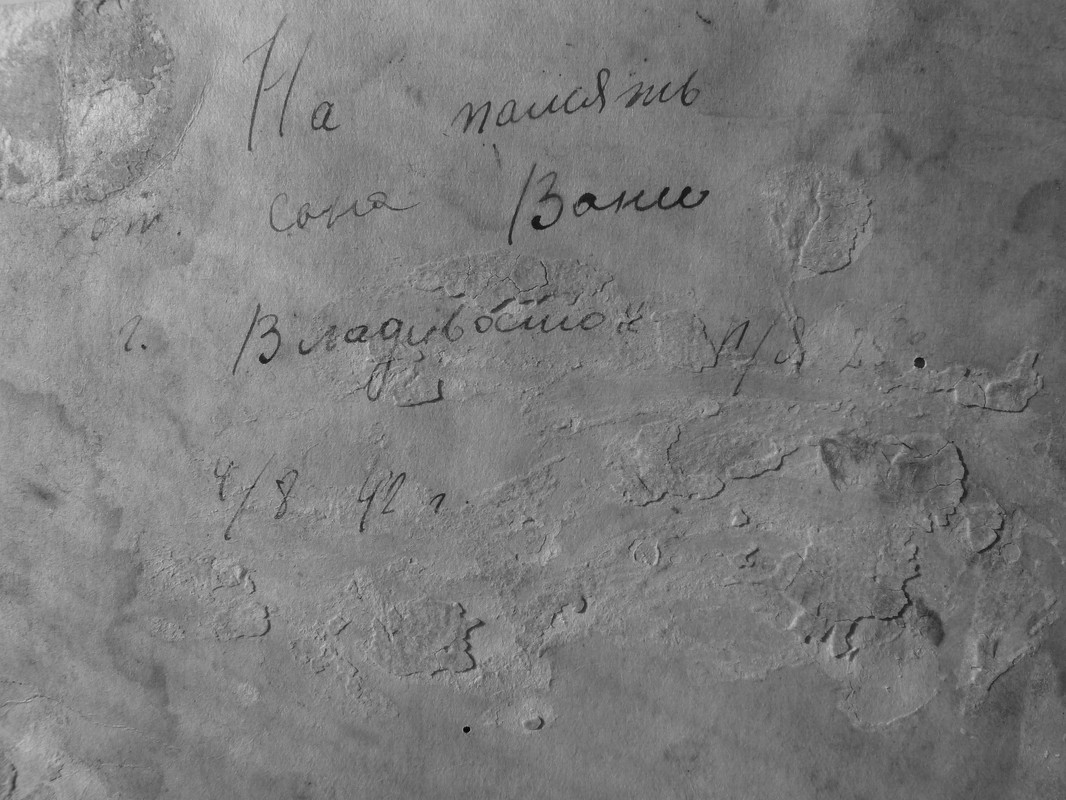 На память
от. сона Вани
г. Владивосток
4/8 42 г.